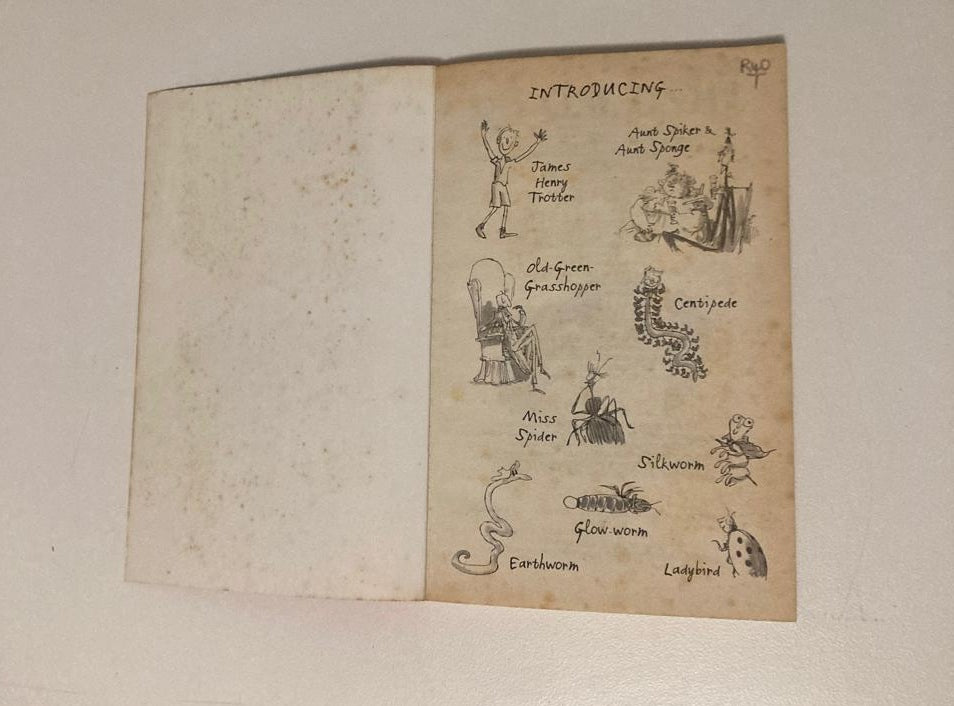 INTRODUCING...
James
Henry
Trotter
Aunt Spiker &
Aunt Sponge
Old-Green-
Grasshopper
Centipede
Miss
Spider
Silkworm
Glow-worm
Earthworm
Ladybird